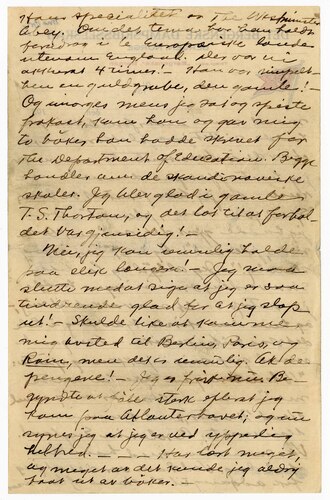 Hans spesialitet er The Westminster
Abbey. Om dette tema har han holdt
foredrag i Europæiske lande
utenom England. Der var vi
akkurat 4 timer. — Han var simpelt-
hen en guldgrube, den gamle! —
Og imorges mens jeg sat og spiste
frokost, kom han og gav mig
to bøker han hadde skrevet for
The Department of Education. Begge
handler om de skandinaviske
skoler. Jeg blev glad i gamle
T. S. Thornton, og det lot til at forhol-
det var gjensidig! —
Nei, jeg kan umulig holde
paa slik længer. — Jeg maa
slutte med at si at jeg er saa
tindrende glad for at jeg slap
ut! — Skulde like at komme
mig hvited til Berlin, Paris, og
Rom, men det er umulig. Ak de
pengene! — Jeg er frisk nu. Be-
gyndte at bli sterk efterat jeg
kom paa Atlanterhavet; og nu
synes jeg at jeg er ved yppedig
helbred. — — Har lært meget,
og meget av det kunde jeg aldrig
faat ut av bøker. —